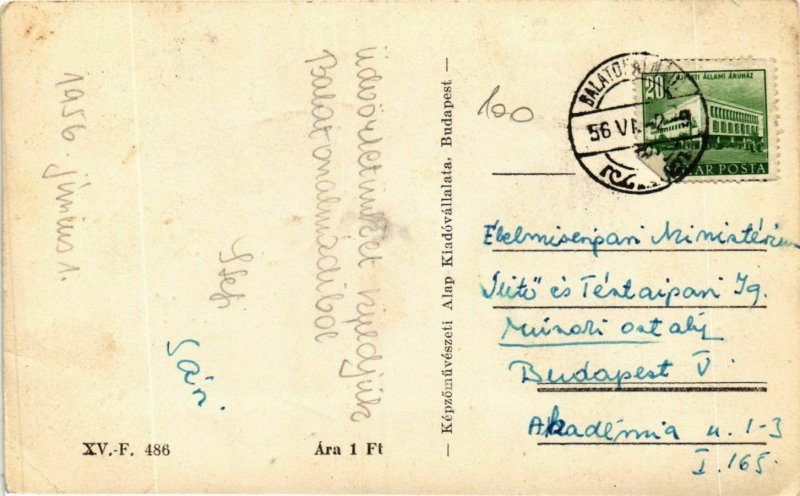 1956. június 1.
Üdvözletünket küldjük
Balatonalmádiból
Stef
Sár.
XV.-F. 486
Ára 1 Ft
— Képzőművészeti Alap Kiadóvállalata, Budapest —
100
BALATONALM
56 VI. 2
20
ÁLLAMI ÁRUHÁZ
AR POSTA
Élelmiszeripari Minisztérium
Sütő és Tésztaipari Ig.
Műszaki osztály
Budapest V
Akadémia u. 1-3
I. 165.